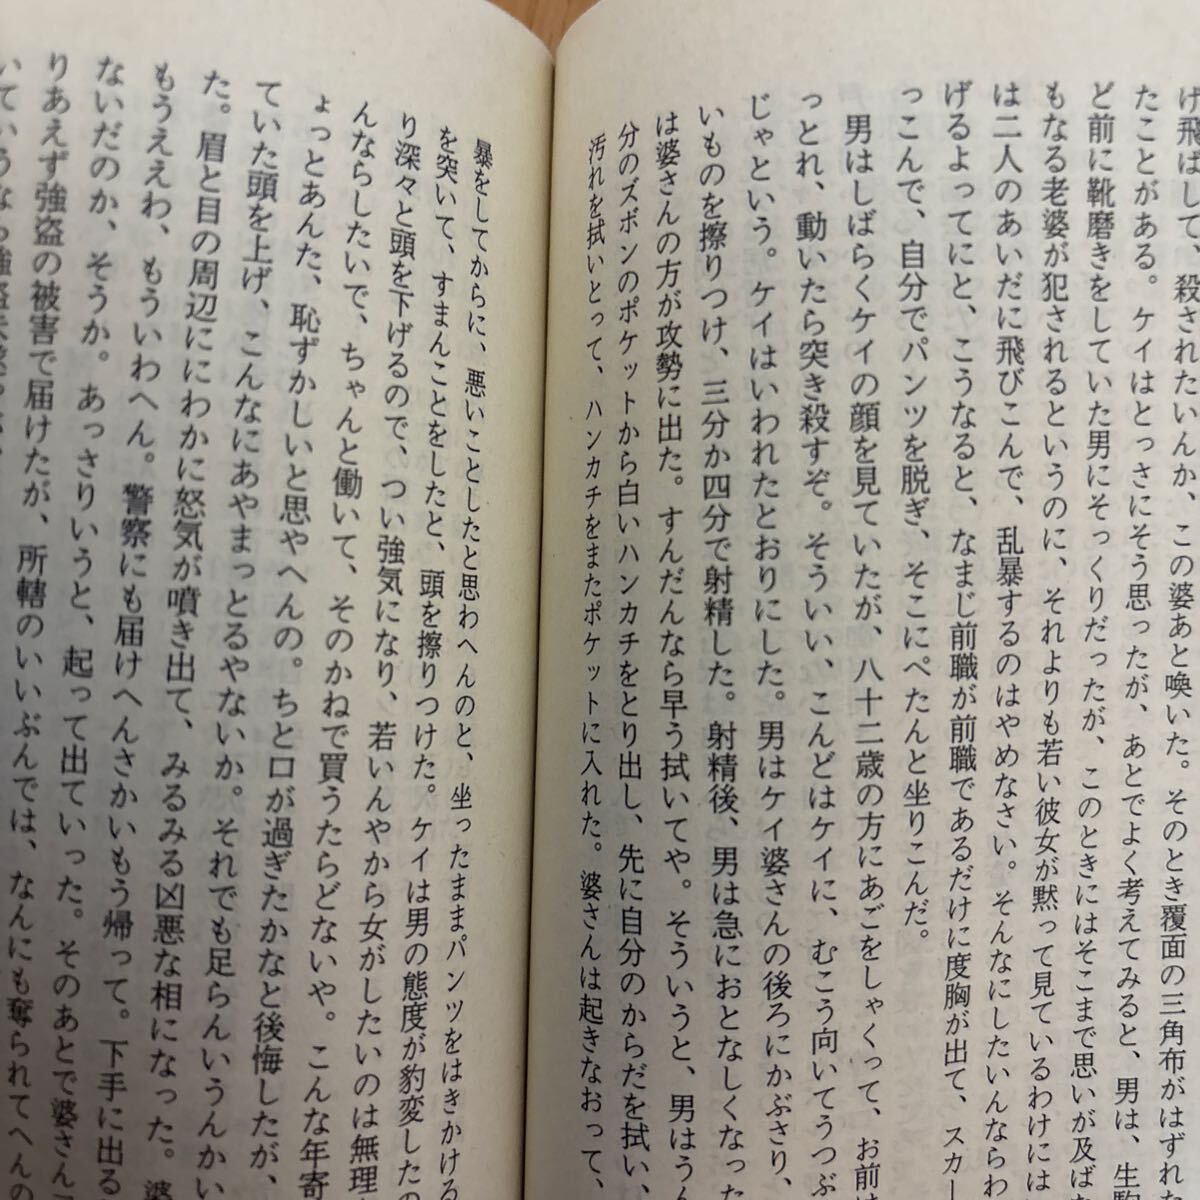 げ飛ばして、殺されたいんか、この婆あと喚いた。そのとき覆面の三角布がはずれた
たことがある。ケイはとっさにそう思ったが、あとでよく考えてみると、男は、生駒
ど前に靴磨きをしていた男にそっくりだったが、このときにはそこまで思いが及ばな
もなる老婆が犯されるというのに、それよりも若い彼女が黙って見ているわけには
は二人のあいだに飛びこんで、乱暴するのはやめなさい。そんなにしたいんならわ
げるよってにと、こうなると、なまじ前職が前職であるだけに度胸が出て、スカー
っこんで、自分でパンツを脱ぎ、そこにぺたんと坐りこんだ。
男はしばらくケイの顔を見ていたが、八十二歳の方にあごをしゃくって、お前は
っとれ、動いたら突き殺すぞ。そういい、こんどはケイに、むこう向いてうつぶ
じゃという。ケイはいわれたとおりにした。男はケイ婆さんの後ろにかぶさり、
いものを擦りつけ、三分か四分で射精した。射精後、男は急におとなしくなった
は婆さんの方が攻勢に出た。すんだんなら早う拭いてや。そういうと、男はうん
分のズボンのポケットから白いハンカチをとり出し、先に自分のからだを拭い、
汚れを拭いとって、ハンカチをまたポケットに入れた。婆さんは起きなおって、
暴をしてからに、悪いことしたと思わへんのと、坐ったままパンツをはきかける
を突いて、すまんことをしたと、頭を擦りつけた。ケイは男の態度が豹変したの
り深々と頭を下げるので、つい強気になり、若いんやから女がしたいのは無理
んならしたいで、ちゃんと働いて、そのかねで買うたらどないや。こんな年寄
ょっとあんた、恥ずかしいと思やへんの。ちと口が過ぎたかなと後悔したが、
ていた頭を上げ、こんなにあやまっとるやないか。それでも足らんいうんかい
た。眉と目の周辺ににわかに怒気が噴き出て、みるみる凶悪な相になった。婆
もうええわ、もういわへん。警察にも届けへんさかいもう帰って。下手に出る
ないだのか、そうか。あっさりいうと、起って出ていった。そのあとで婆さん
りあえず強盗の被害で届けたが、所轄のいいぶんでは、なんにも奪られてへんの